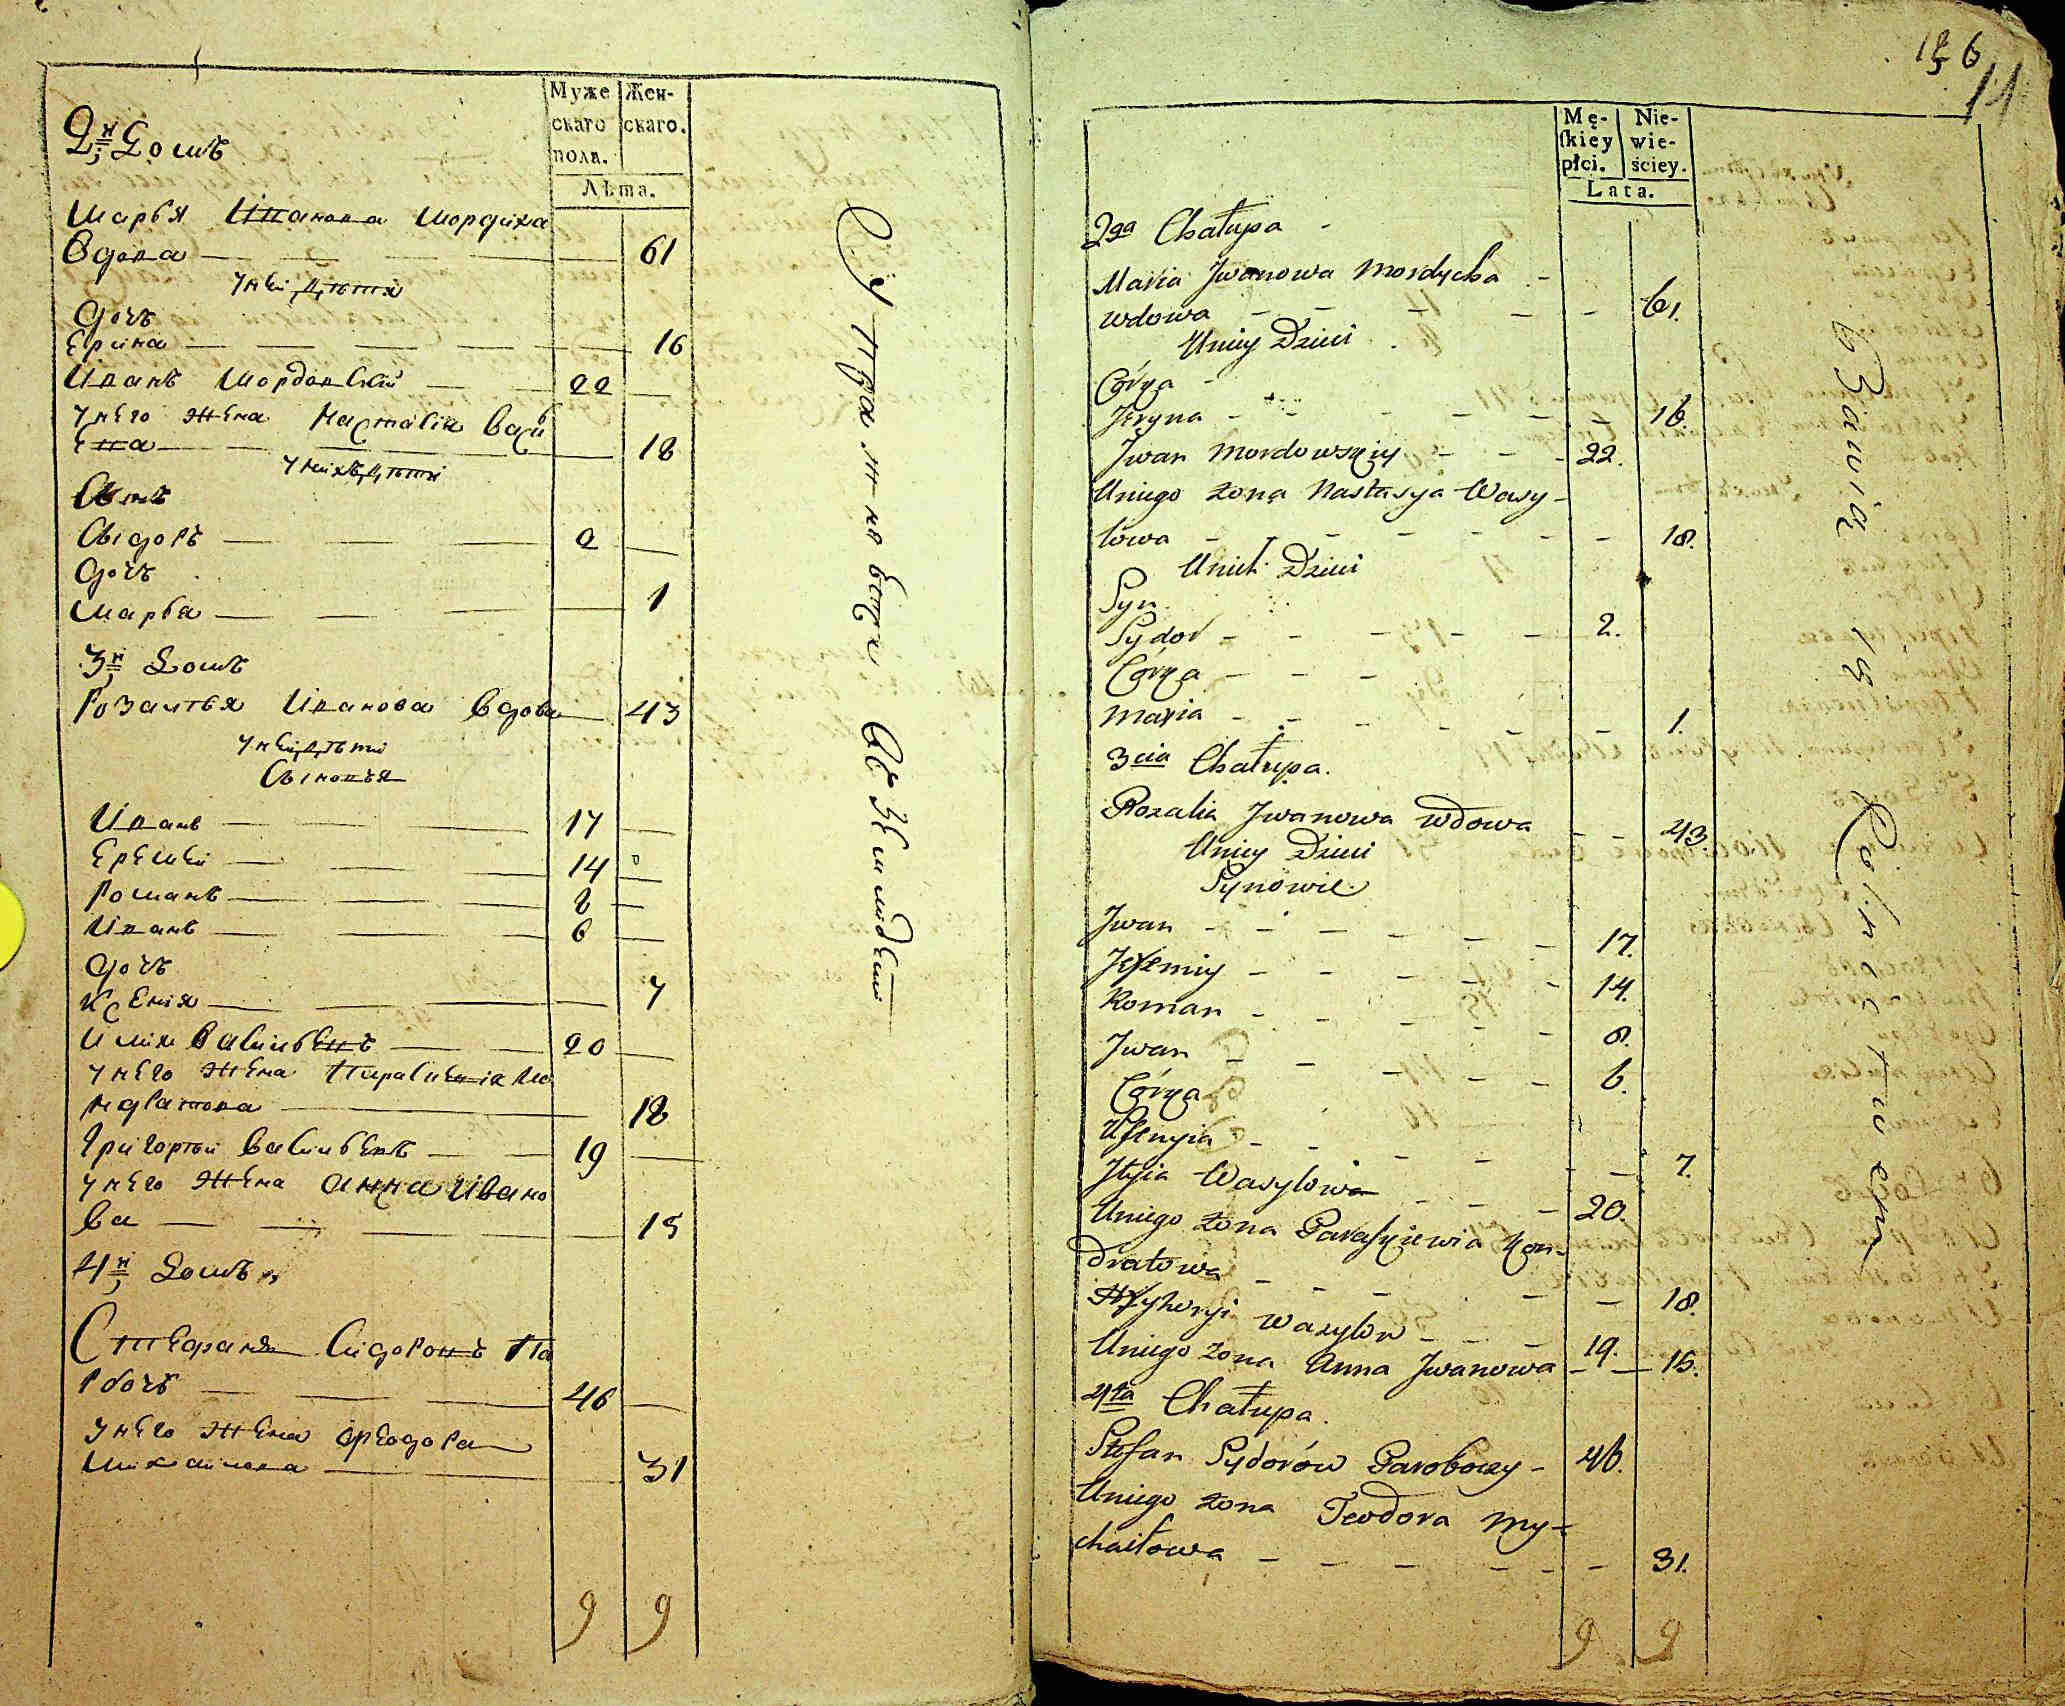 Муже
скаго
пола.
Жен-
скаго.
Лѣта.
2й Домъ
Марья Иванова Мордиха
Вдова — — — 61
У ней дѣти
Дочъ
Ерина — — — 16
Иванъ Мордовскій — — 22
У него жена Настасія Васи
Ева — — — 18
У нихъ дѣти
Сынъ
Сыдоръ — — — 2
Дочъ
Марья — — — 1
3й Домъ
Розалія Иванова вдова — 43
У ней дѣти
Сыновья
Иванъ — — — 17
Еремей — — — 14
Романъ — — — 8
Иванъ — — — 6
Дочъ
Ксенія — — — 7
Илія Васильевъ — — 20
У него жена Пирасцевія Ко
ндратова — — 18
Григорій Васильевъ — — 19
У него жена Анна Ивано
ва — — — 15
4й Домъ
Стефанъ Сидоровъ Па
робочъ — — — 46
У него жена Феодора
Михайлова — — — 31
9 9
Упражняются въ земледѣліи
6
14
Mę-
skiey
płci.
Nie-
wie-
ściey.
Lata.
2ga Chałupa -
Maria Jwanowa Mordycha -
wdowa - - - - 61.
Uniey Dzieci
Córka -
Jeryna - - - - 16.
Jwan Mordowskiy - - - 22.
Uniego żona Nastasya Wasy-
lowa - - - - 18.
Unich Dzieci
Syn.
Sydor - - - - 2.
Córka - - -
Maria - - - - 1.
3cia Chałupa.
Rozalia Jwanowa Wdowa - - 43.
Uniey Dzieci
Synowie.
Jwan - - - - 17.
Jeremiy - - - - 14.
Roman - - - - 8.
Jwan - - - - 6.
Córka
Xsenyia - - - - 7.
Jlyia Wasylowia - - - 20.
Uniego żona Paraskiewia Kon-
dratowa - - - - 18.
Hryhoryi Wasylow - - - 19.
Uniego żona Anna Jwanowa - - 15.
4ta Chałupa.
Stefan Sydorów Paroboczy - 46.
Uniego żona Teodora My-
chaiłowa - - - - 31.
9 9
Bawią się Rolnictwem